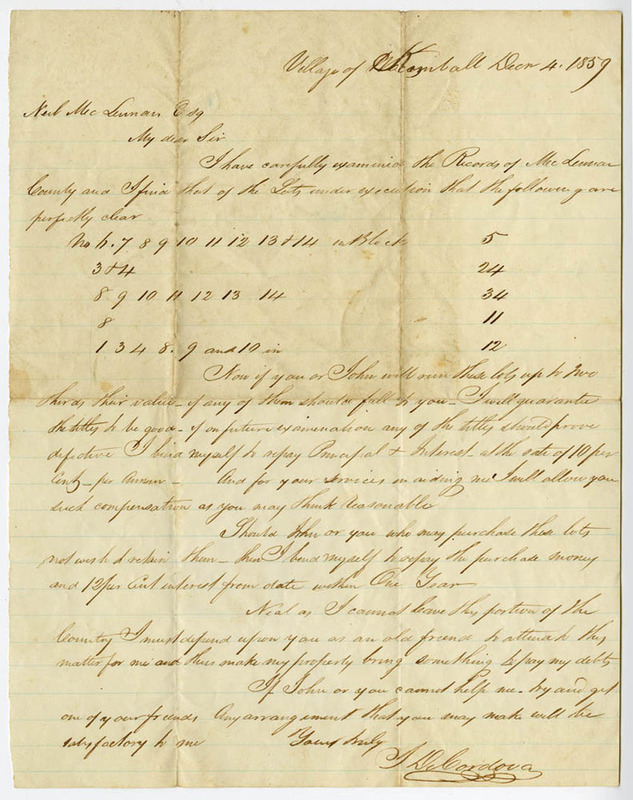 Village of Kimball Decr 4. 1859
Neil McLennan Esq
My dear Sir
I have carefully examined the Records of McLennan
County and I find that of the Lots under execution that the following are
perfectly clear
No 6. 7 8 9 10 11 12 13 & 14 in Block 5
3 & 4 24
8 9 10 11 12 13 14 34
8 11
1 3 4 8. 9 and 10 in 12
Now if you or John will run these lots up to two
thirds their value - if any of them should fall to you - I will guarantee
the titles to be good - if on future examination any of the titles should prove
defective I bind myself to repay Principal & Interest at the rate of 10 per
Cent - per Annum - And for your services in aiding me I will allow you
such compensation as you may think reasonable
Should John or you who may purchase these lots
not wish to retain them - then I bind myself to repay the purchase money
and 12 per Cent interest from date within One Year
Neal as I cannot leave this portion of the
Country I must depend upon you as an old friend to attend to this
matter for me and thus make my property bring something to pay my debts
If John or you cannot help me - try and get
one of your friends Any arrangement that you may make will be
satisfactory to me Yours truly
J De Cordova